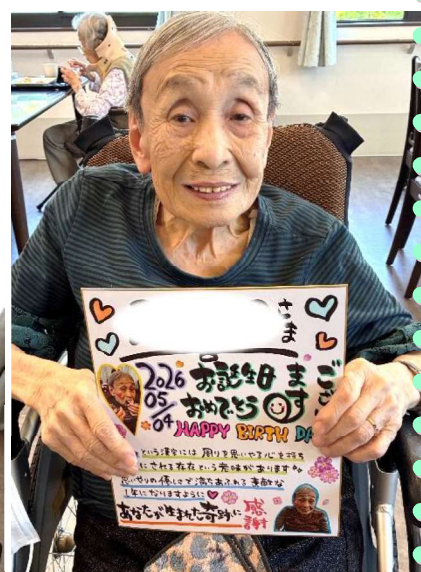 さま
2026
05/04
お誕生日
おめでとう
ござ
ます
HAPPY BIRTH DA
という漢字には 周りを思いやる心を持ち
にされる存在という意味があります
思いやりの優しさで満ちあふれる素敵な
1年になりますように
あなたが生まれた奇跡に
感謝